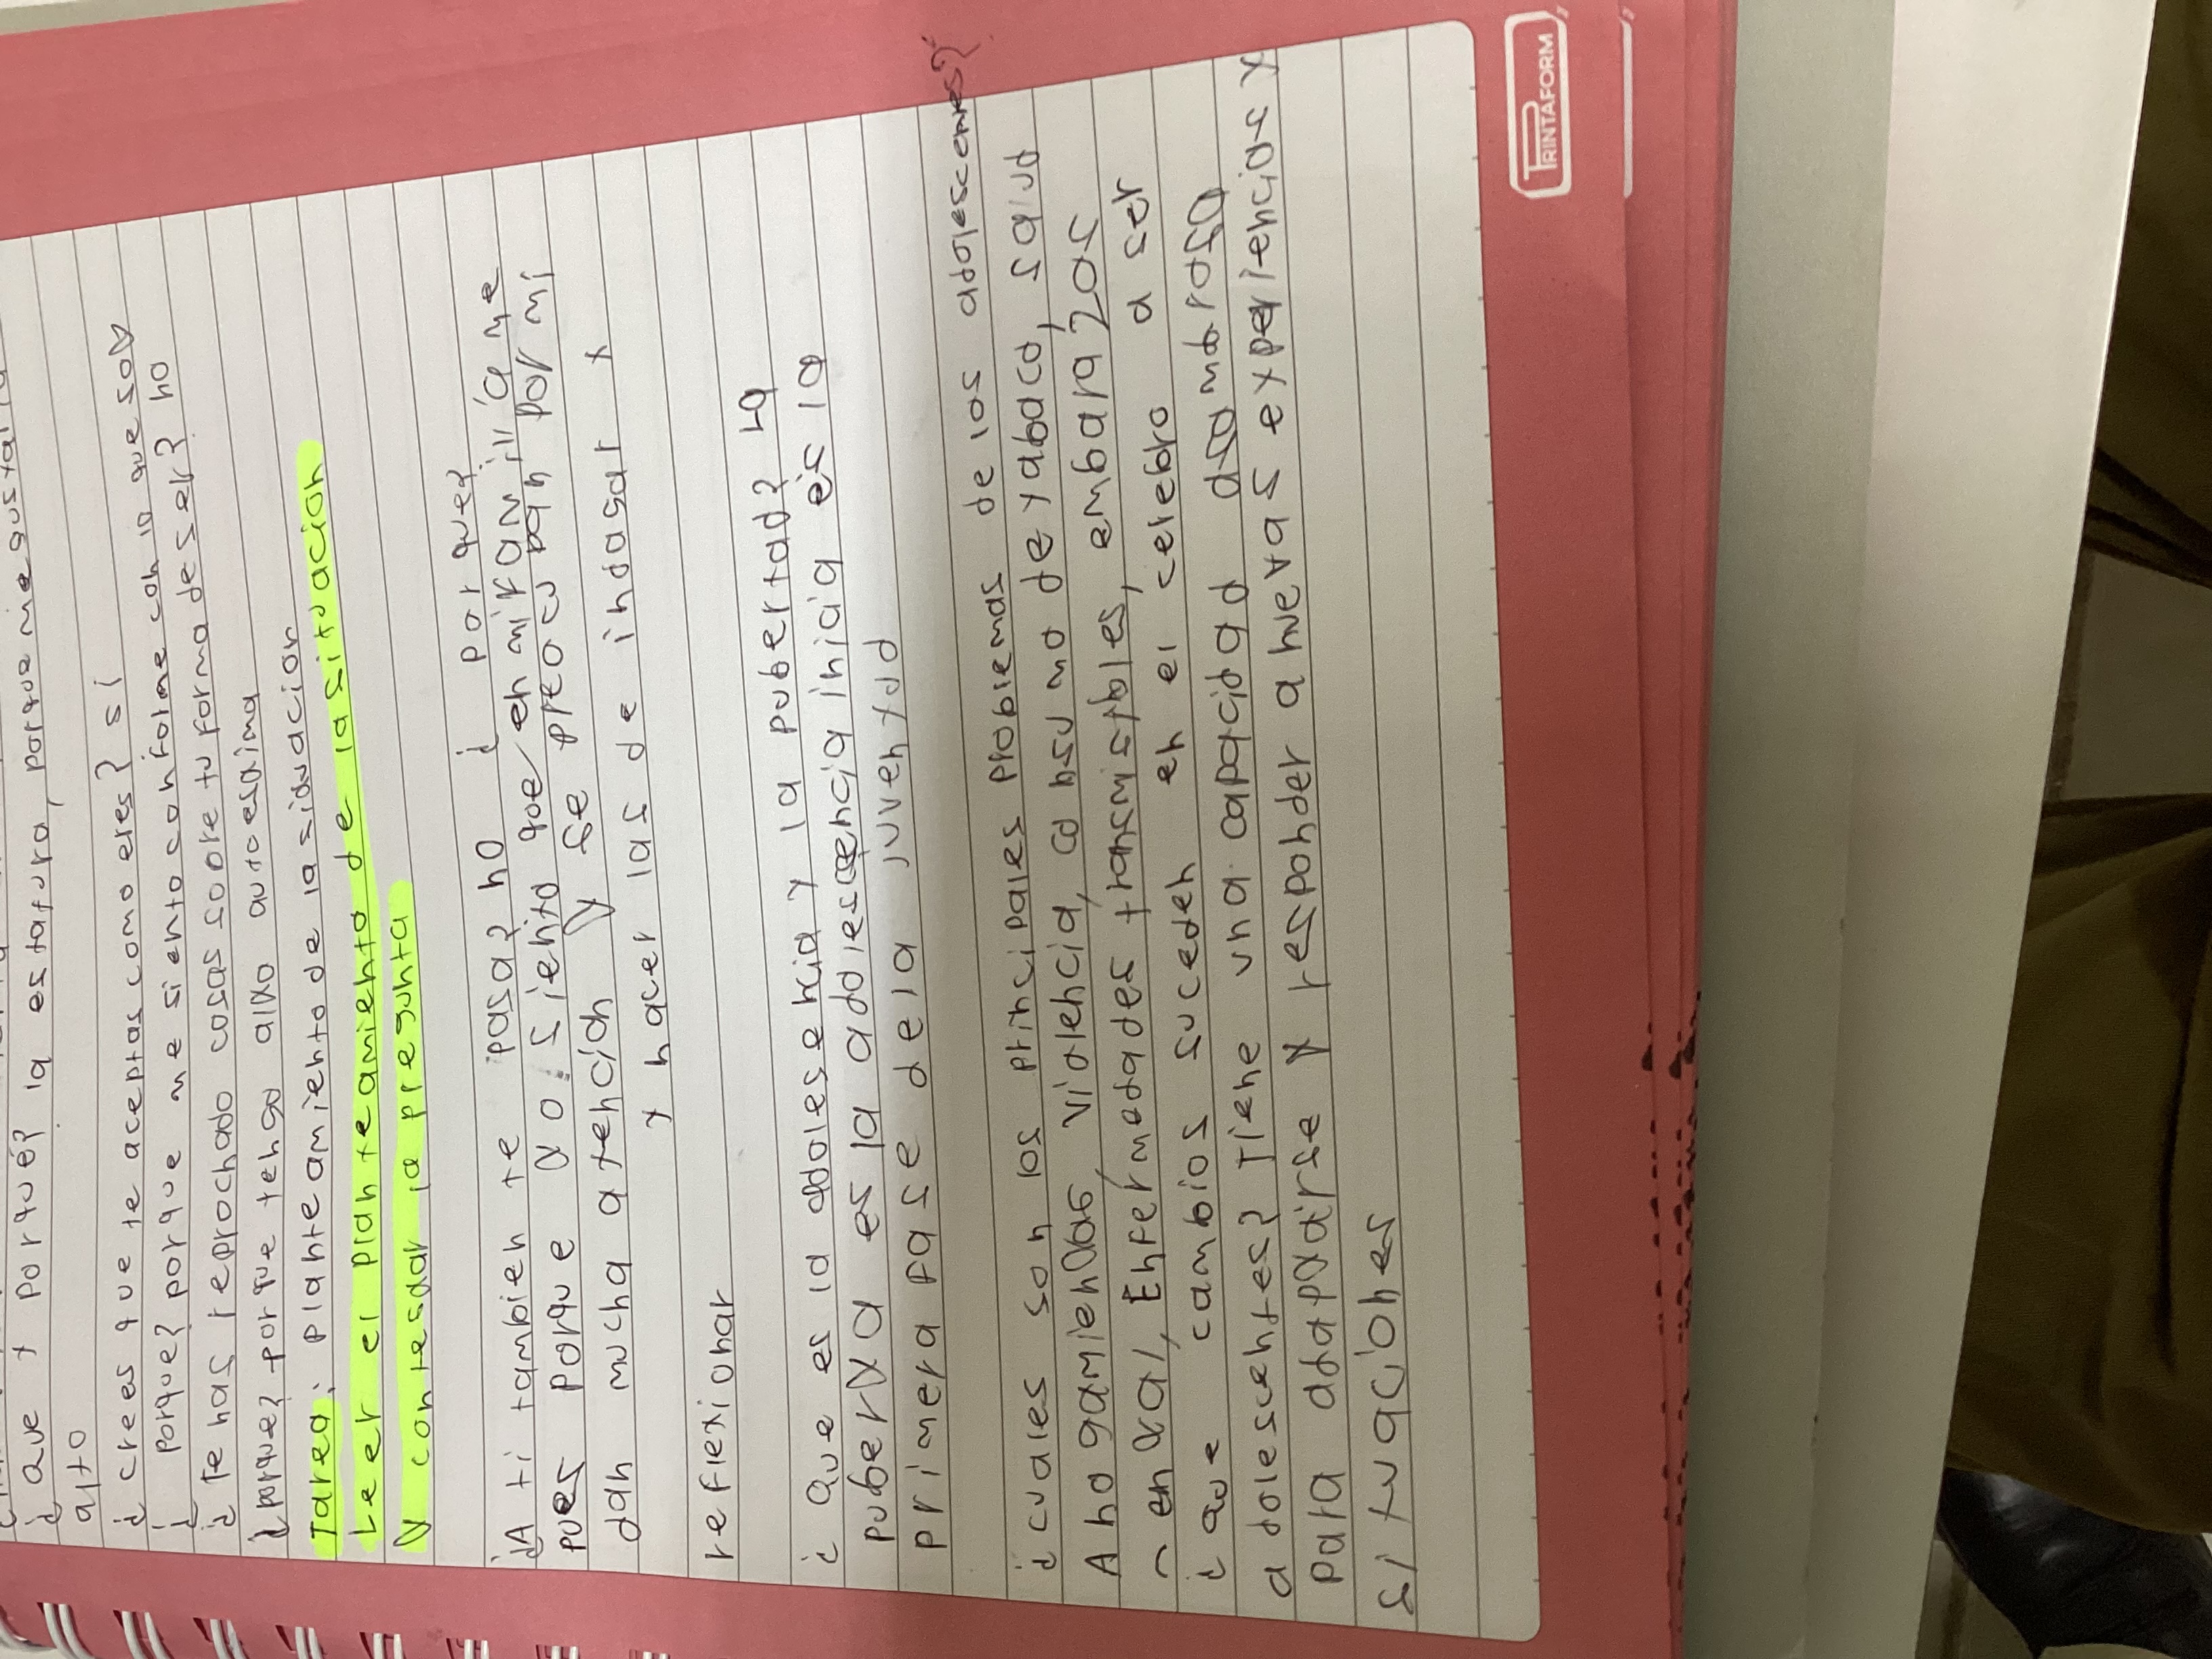 ¿ que y porqué? la estatura, porque me gustaría
alto
¿ crees que te aceptas como eres? sí
¿ porque? porque me siento conforme con lo que soy
¿ Te has reprochado cosas sobre tu forma de ser? no
¿ porque? porque tengo algo autoestima
Tarea: planteamiento de la siduacion
Leer el planteamiento de la situacion
y contesdar la pregunta
¿A ti tambien te pasa? no ¿ por que?
pues porque yo siento que en mi familia me
dan mucha atención y se preocupan por mi
y hacer las de indagar y
reflexionar
¿ que es la adolesencia y la pubertad? La
puberya es la adolescencia inicia es la
primera fase de la juventud
¿ cuales son los principales problemas de los adolescentes?
Ahogamiendas violencia, consumo de tabaco, salud
menxal, Enfermedades transmisibles, embarazos
¿ que cambios suceden en el cerebro a ser
adolescentes? Tiene una capacidad asombrosa
para adaptarse y responder a nuevas experiencias y
situaciones
PRINTAFORM